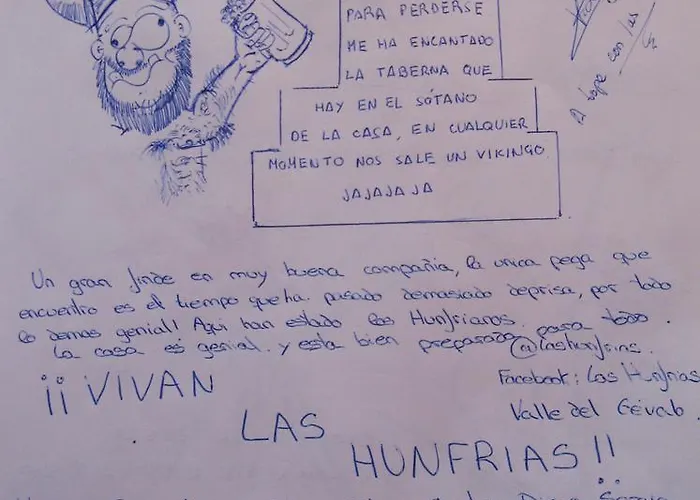 PARA PERDERSE
ME HA ENCANTADO
LA TABERNA QUE
HAY EN EL SÓTANO
DE LA CASA, EN CUALQUIER
MOMENTO NOS SALE UN VIKINGO
JAJAJAJA
A tope con las
Un gran finde en muy buena compañia, la unica pega que
encuentro es el tiempo que ha pasado demasiado deprisa, por todo
lo demas genial! Aqui han estado las Hunfrianas.
La casa es genial. y esta bien preparada para todo.
@lashunfrins.
Facebook: Las Hunfrias
Valle del Gévalo.
¡¡VIVAN
LAS
HUNFRIAS!!